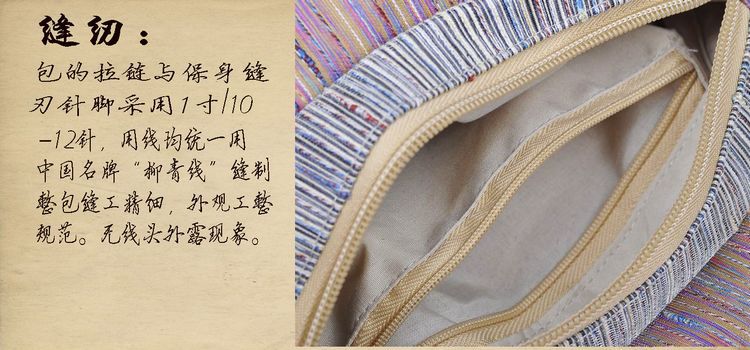 缝纫：
包的拉链与保身缝
刃针脚采用1寸/10
-12针，用线均统一用
中国名牌“柳青线”缝制
整包缝工精细，外观工整
规范。无线头外露现象。